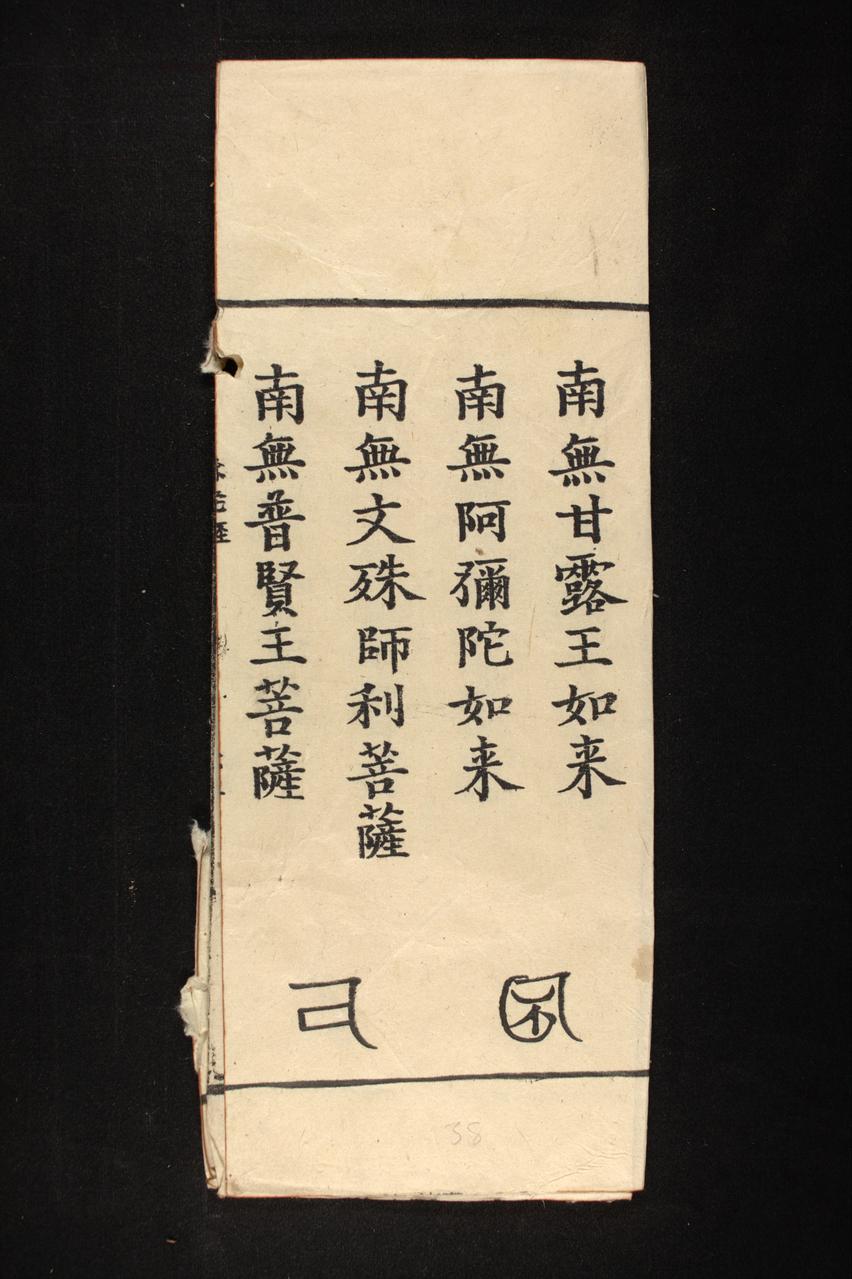 南無甘露王如来
南無阿彌陀如来
南無文殊師利菩薩
南無普賢王菩薩
38